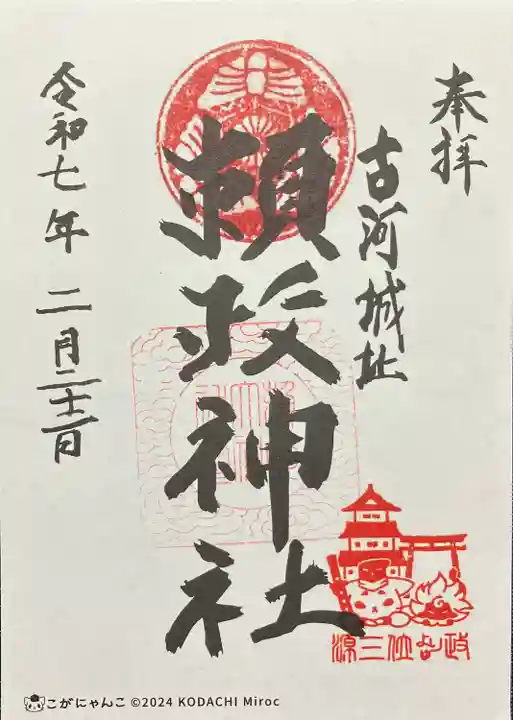 奉拝
古河城址
頼政神社
令和七年 二月二十二日
源三位
こがにゃんこ ©2024 KODACHI Miroc